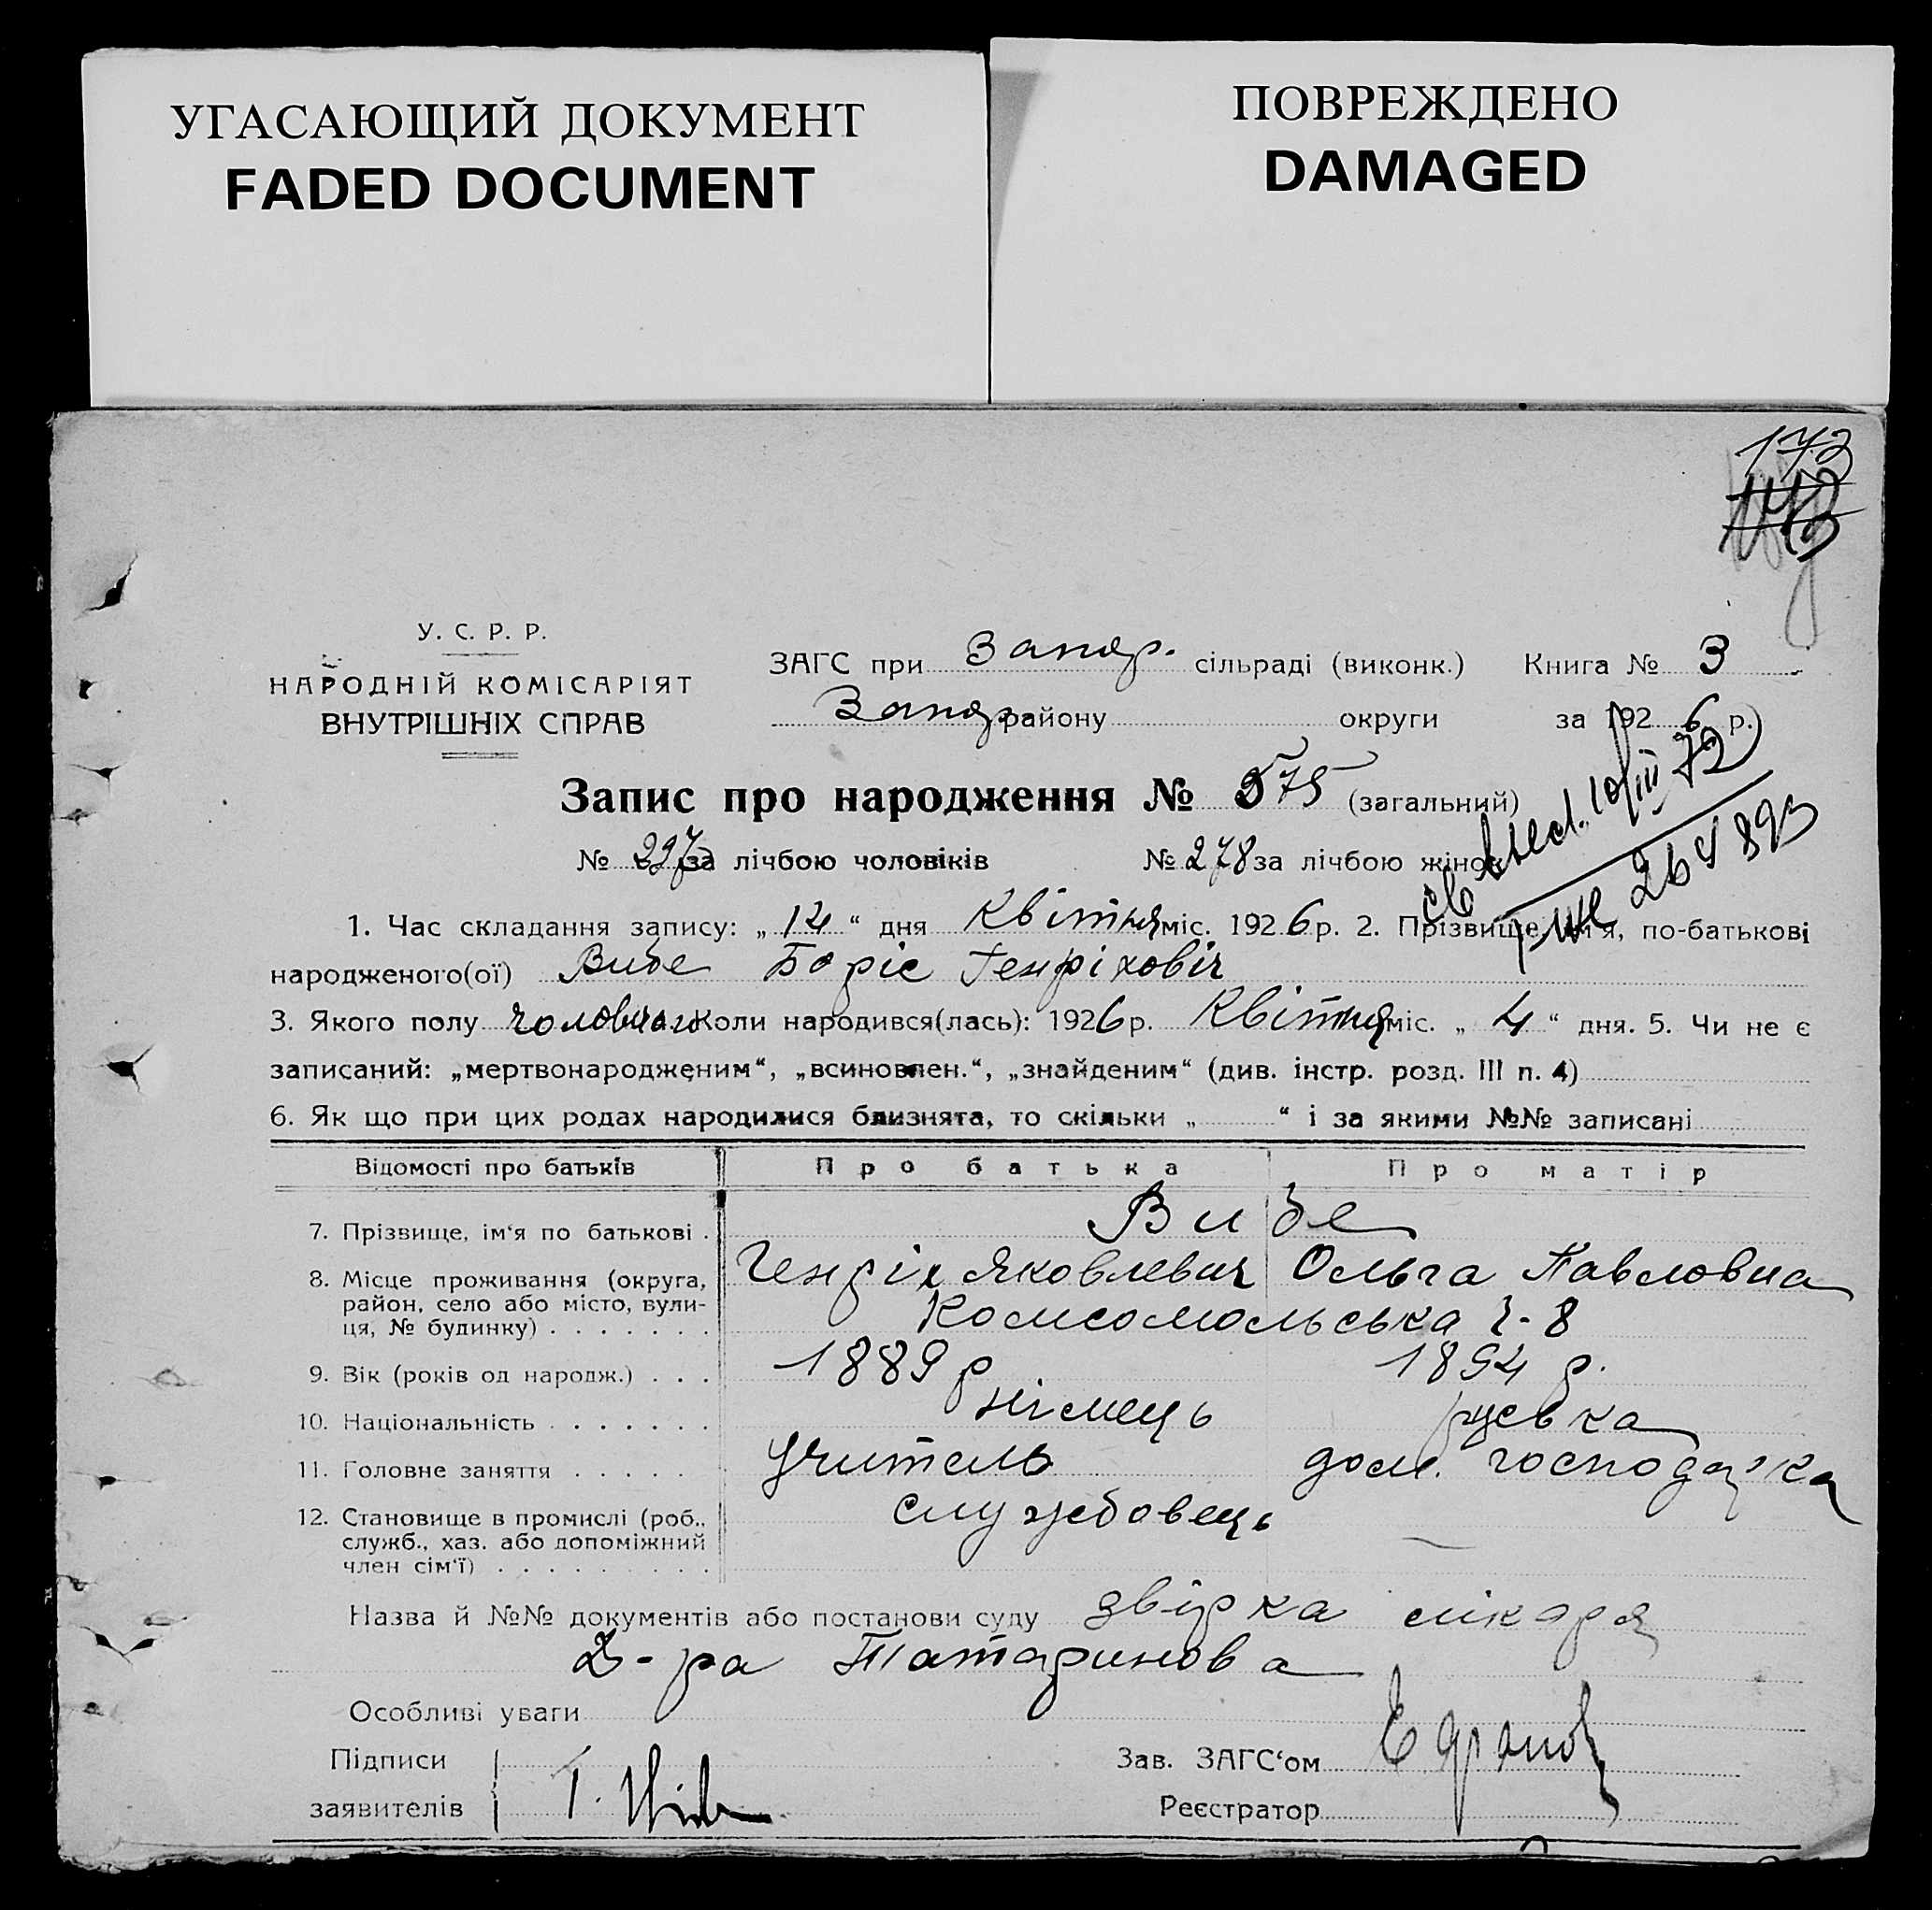 УГАСАЮЩИЙ ДОКУМЕНТ
FADED DOCUMENT
ПОВРЕЖДЕНО
DAMAGED
172
У. С. Р. Р.
НАРОДНІЙ КОМІСАРІЯТ
ВНУТРІШНІХ СПРАВ
ЗАГС при Запор. сільраді (виконк.) Книга № 3
Запор району округи за 1926 р.
Запис про народження № 575 (загальний)
№ 297 за лічбою чоловіків № 278 за лічбою жінок
10/III 72
264893
1. Час складання запису: „14“ дня Квітня міс. 1926 р. 2. Прізвище, ім'я, по-батькові
народженого(ої) Вибе Боріс Генріховіч
3. Якого полу чоловічого Коли народився(лась): 1926 р. Квітня міс. „4“ дня. 5. Чи не є
записаний: „мертвонародженим“, „всиновлен.“, „знайденим“ (див. інстр. розд. III п. 4)
6. Як що при цих родах народилися близнята, то скільки „ “ і за якими №№ записані
Відомості про батьків Про батька Про матір
7. Прізвище, ім'я по батькові . Вибе
8. Місце проживання (округа, Генріх Яковлевич Ольга Павловна
район, село або місто, вули-
ця, № будинку) . . . . . . . Комсомольська ч-8
9. Вік (років од народж.) . . . 1889 р 1894 р.
10. Національність . . . . . . . німець руська
11. Головне заняття . . . . . Учитель дом. господарка
12. Становище в промислі (роб., службовець —
служб., хаз. або допоміжний
член сім'ї) . . . . . . . . .
Назва й №№ документів або постанови суду звірка лікаря
Д-ра Татаринова
Особливі уваги
Підписи
Зав. ЗАГС'ом
заявителів
Реєстратор